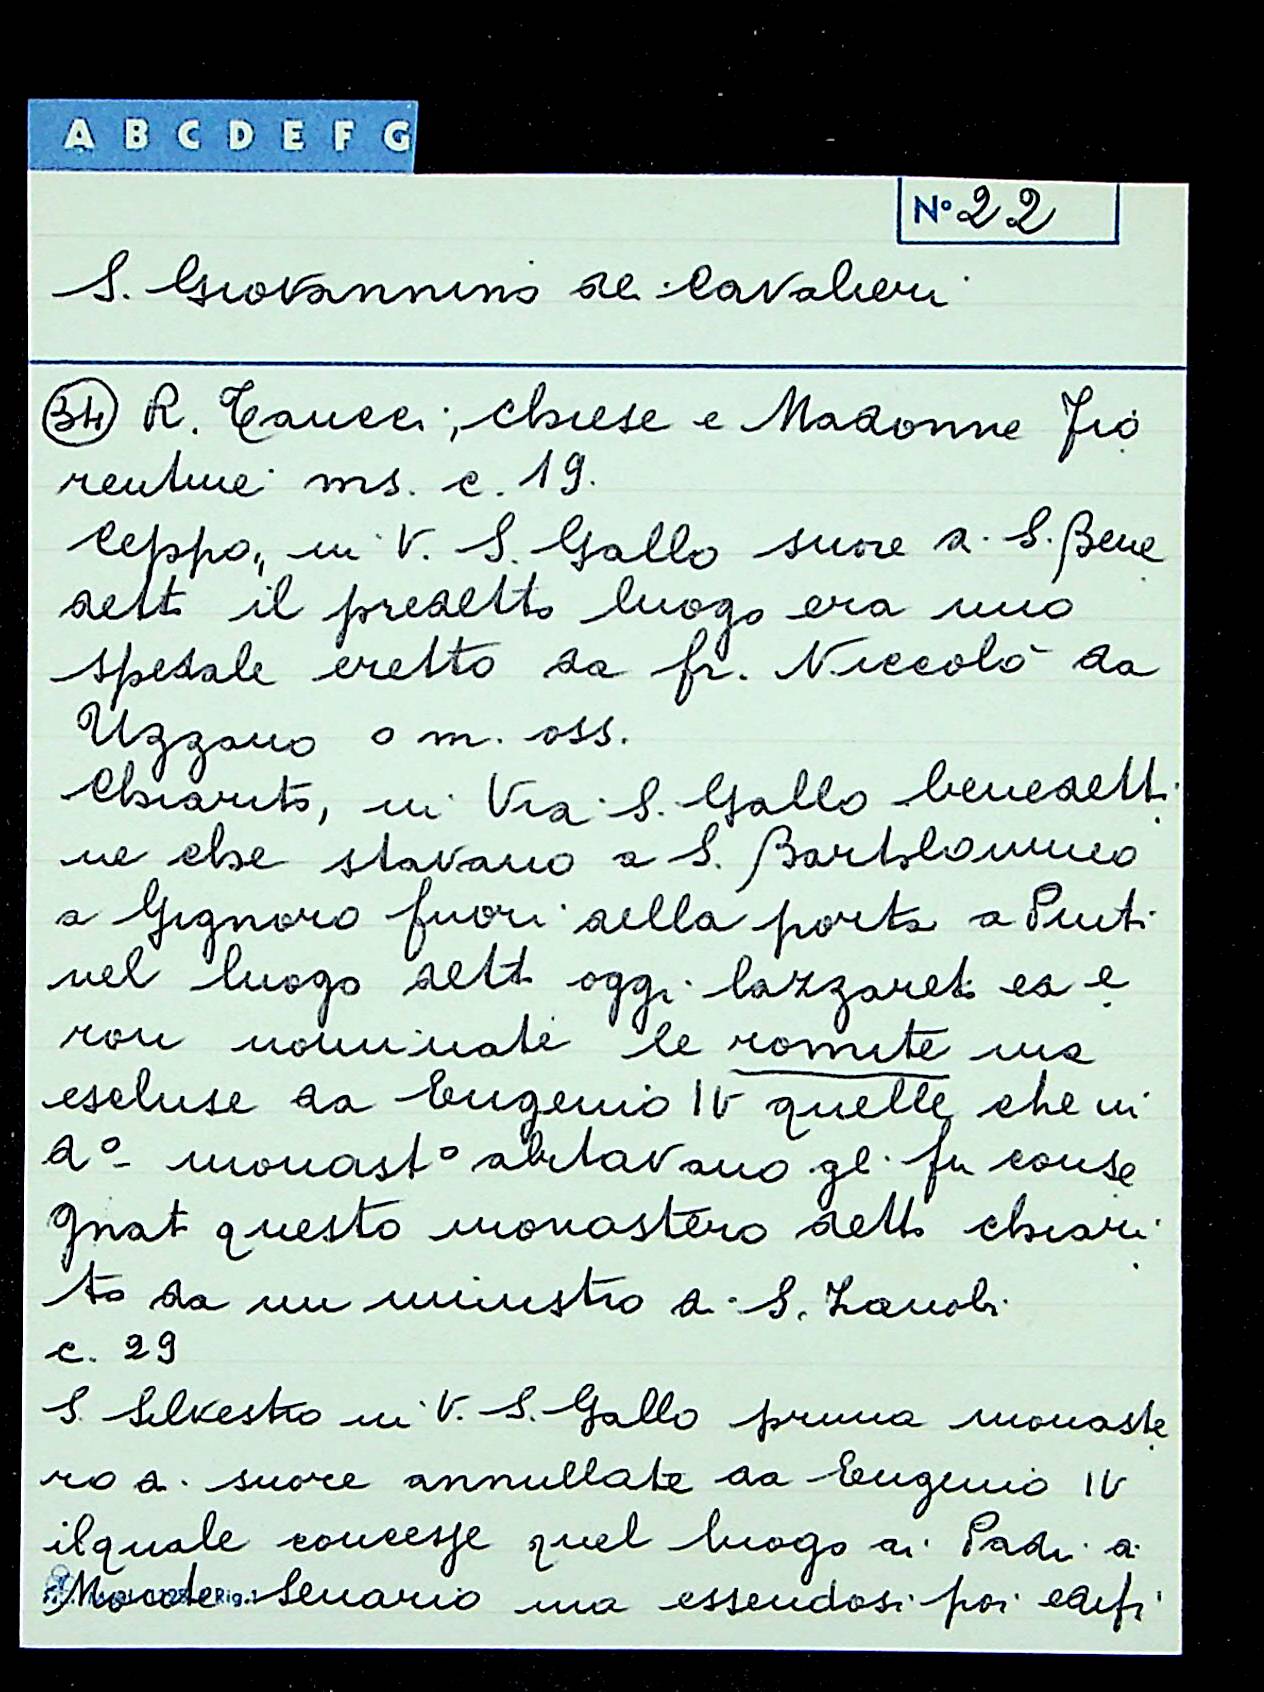 A B C D E F G
Nº 22
S. Giovannino dei Cavalieri
34 R. Taucci; chiese e Madonne Fio
rentine ms. c. 19.
Ceppo, in V. S. Gallo suore di S. Bene
detto il predetto luogo era uno
spedale eretto da fr. Niccolò da
Uzzano o m. oss.
Chiarito, in Via S. Gallo benedetti
ne che stavano a S. Bartolommeo
a Gignoro fuori della porta a Pinti
nel luogo detto oggi lazzareto ed e
ron nominate le romite ma
escluse da Eugenio IV quelle che in
dº monastº abitavano gl. fu conse
gnat questo monastero detto chiari
to da un ministro di S. Zanobi
c. 29
S. Silvestro in V. S. Gallo prima monaste
ro di suore annullate da Eugenio IV
ilquale concesse quel luogo ai Padri di
Monte Senario ma essendosi poi edifi